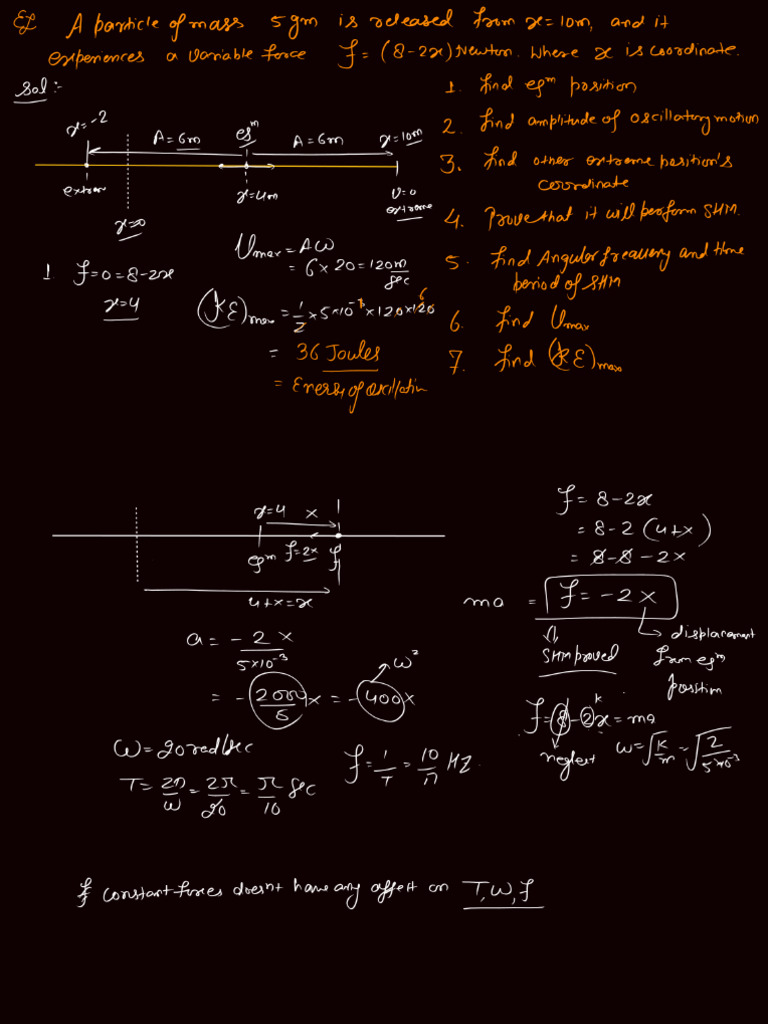 Ex A particle of mass 5 gm is released from x=10m, and it
experiences a variable force f = (8-2x) Newton. Where x is coordinate.
Sol :-
1. find eqm position
2. find amplitude of oscillatory motion
3. find other extreme position's
coordinate
4. Prove that it will perform SHM.
5. find Angular frequency and time
period of SHM
6. find Umax
7. find (KE)max
x=-2
A=6m
eqm
A=6m
x=10m
extreme
x=4m
U=0
extreme
x=0
1 f=0=8-2x
x=4
Umax = Aω
= 6×20=120m/sec
(KE)max = 1/2 ×5×10⁻³×120×120 6
= 36 Joules
= Energy of oscillation
x=4 X
eqm f=2x f
4+x=x
f = 8-2x
= 8-2(4+x)
= 8-8-2x
ma = f = -2x
SHM proved
displacement
from eqm
position
a = -2x/5×10⁻³
= -(2000/5)x = -400x
ω²
ω=20rad/sec
T = 2π/ω = 2π/20 = π/10 sec
f = 1/T = 10/π HZ.
f=8-2x=ma
k
neglect
ω=√k/m = √2/5×10⁻³
constant forces doesnt have any affect on T, ω, f